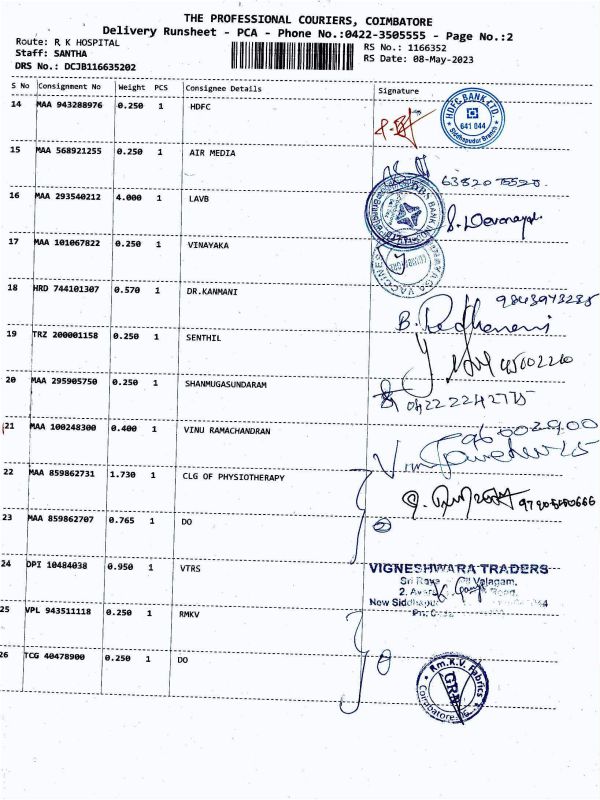 THE PROFESSIONAL COURIERS, COIMBATORE
Delivery Runsheet - PCA - Phone No.:0422-3505555 - Page No.:2
Route: R K HOSPITAL
Staff: SANTHA
DRS No.: DCJB116635202
RS No.: 1166352
RS Date: 08-May-2023
S No Consignment No Weight PCS Consignee Details Signature
14 MAA 943288976 0.250 1 HDFC
HDFC BANK LTD.
641 044
Siddhapudur Branch
15 MAA 568921255 0.250 1 AIR MEDIA
16 MAA 293540212 4.000 1 LAVB
DBS BANK
17 MAA 101067822 0.250 1 VINAYAKA
18 HRD 744101307 0.570 1 DR.KANMANI
9843973285
19 TRZ 200001158 0.250 1 SENTHIL
20 MAA 295905750 0.250 1 SHANMUGASUNDARAM
0422 2242775
21 MAA 100248300 0.400 1 VINU RAMACHANDRAN
22 MAA 859862731 1.730 1 CLG OF PHYSIOTHERAPY
23 MAA 859862707 0.765 1 DO
24 DPI 10484038 0.950 1 VTRS
VIGNESHWARA TRADERS
25 VPL 943511118 0.250 1 RMKV
26 TCG 40478900 0.250 1 DO
Rm.K.V. Fabrics
GRN
Coimbatore